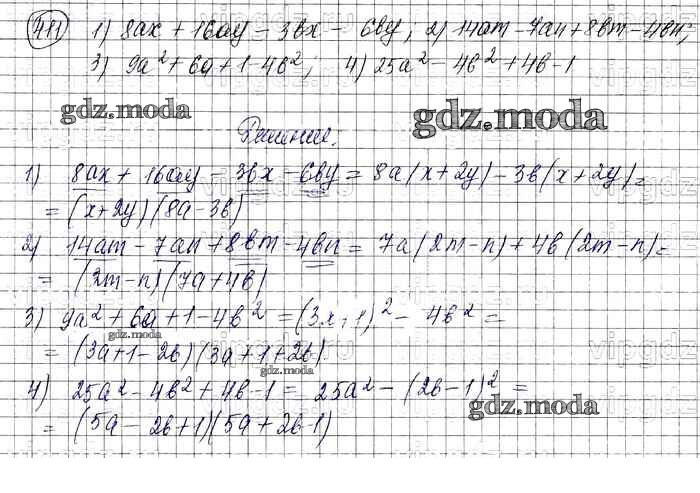 411 1) 8ax + 16ay - 3bx - 6by; 2) 14am - 7an + 8bm - 4bn;
3) 9a² + 6a + 1 - 4b²; 4) 25a² - 4b² + 4b - 1
gdz.moda gdz.moda
Решение.
1) 8ax + 16ay - 3bx - 6by = 8a(x+2y) - 3b(x+2y) =
= (x+2y)(8a-3b)
2) 14am - 7an + 8bm - 4bn = 7a(2m-n) + 4b(2m-n) =
= (2m-n)(7a+4b)
3) 9a² + 6a + 1 - 4b² = (3x+1)² - 4b² =
gdz.moda
= (3a+1-2b)(3a+1+2b)
gdz.moda
4) 25a² - 4b² + 4b - 1 = 25a² - (2b-1)² =
gdz.moda
= (5a - 2b+1)(5a+2b-1)